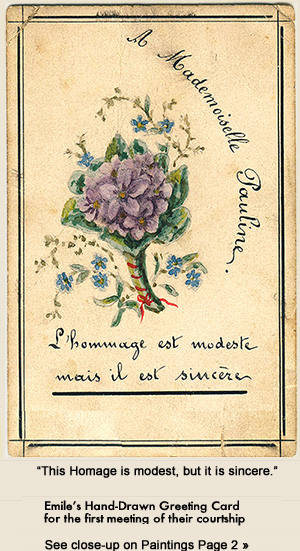 A Mademoiselle Pauline.
L'hommage est modeste
mais il est sincère
“This Homage is modest, but it is sincere.”
Emile’s Hand-Drawn Greeting Card
for the first meeting of their courtship
See close-up on Paintings Page 2 »